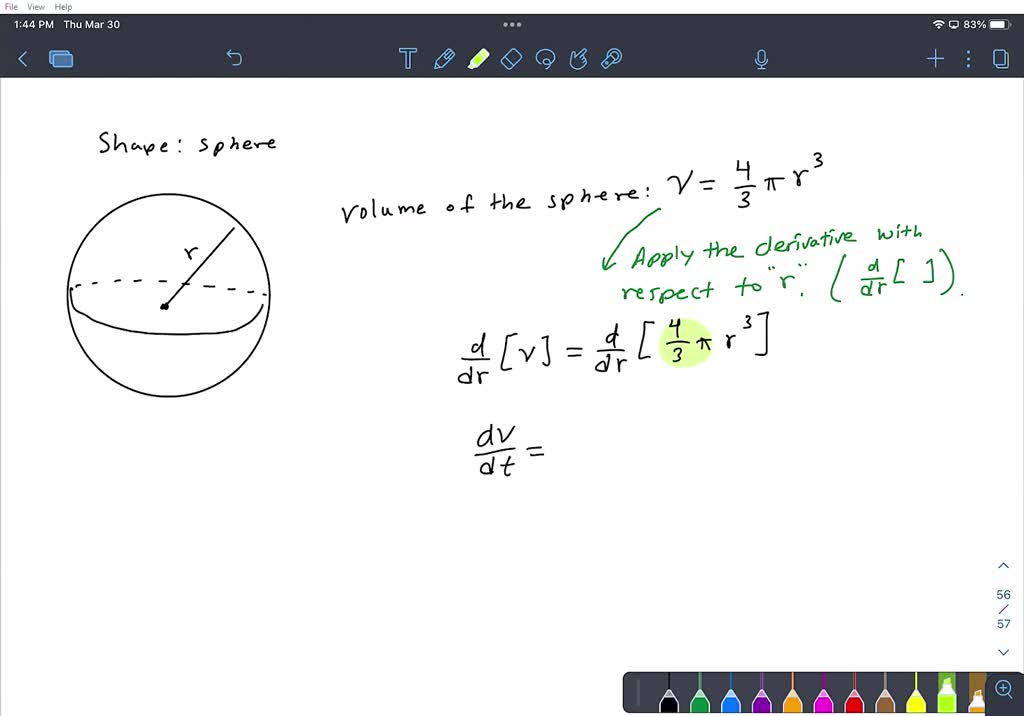 File View Help
1:44 PM Thu Mar 30
83%
T
Shape: sphere
r
volume of the sphere: V = 4/3 π r^3
Apply the derivative with
respect to "r". ( d/dr [ ] ).
d/dr [v] = d/dr [ 4/3 π r^3 ]
dv/dt =
56
/
57